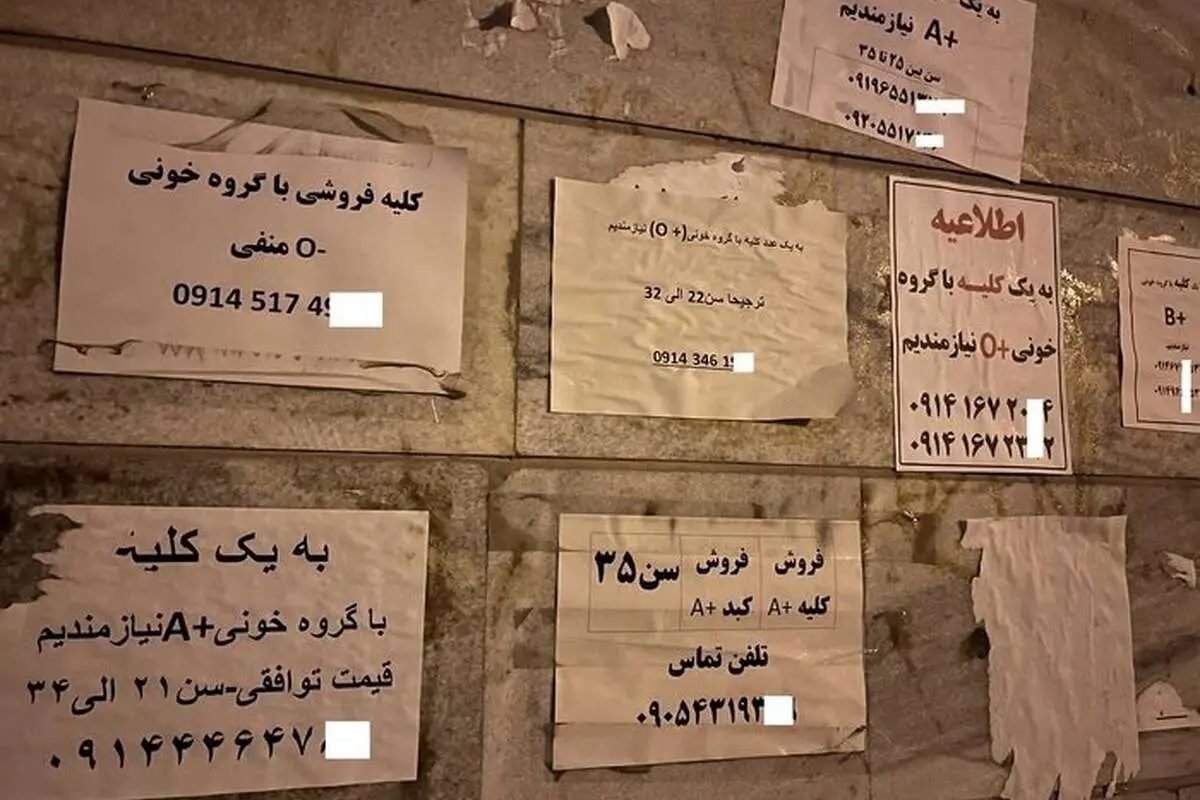 به یک
A+ نیازمندیم
سن بین ۲۵ تا ۳۵
۰۹۱۹۶۵۵۱۳
۰۹۲۰۵۵۱۷
کلیه فروشی با گروه خونی
O- منفی
0914 517 49
به یک عدد کلیه با گروه خونی(O +) نیازمندیم
ترجیحا سن22 الی 32
0914 346 1
اطلاعیه
به یک کلیه با گروه
خونی O+ نیازمندیم
۰۹۱۴ ۱۶۷ ۲۰ ۴
۰۹۱۴ ۱۶۷ ۲۳ ۲
کلیه با گروه خونی
B+
نیازمندیم
به یک کلیه
با گروه خونی A+نیازمندیم
قیمت توافقی-سن۲۱ الی۳۴
۰۹۱۴۴۴۶۴۷
فروش کلیه A+
فروش کبد A+
سن۳۵
تلفن تماس
۰۹۰۵۴۳۱۹۳